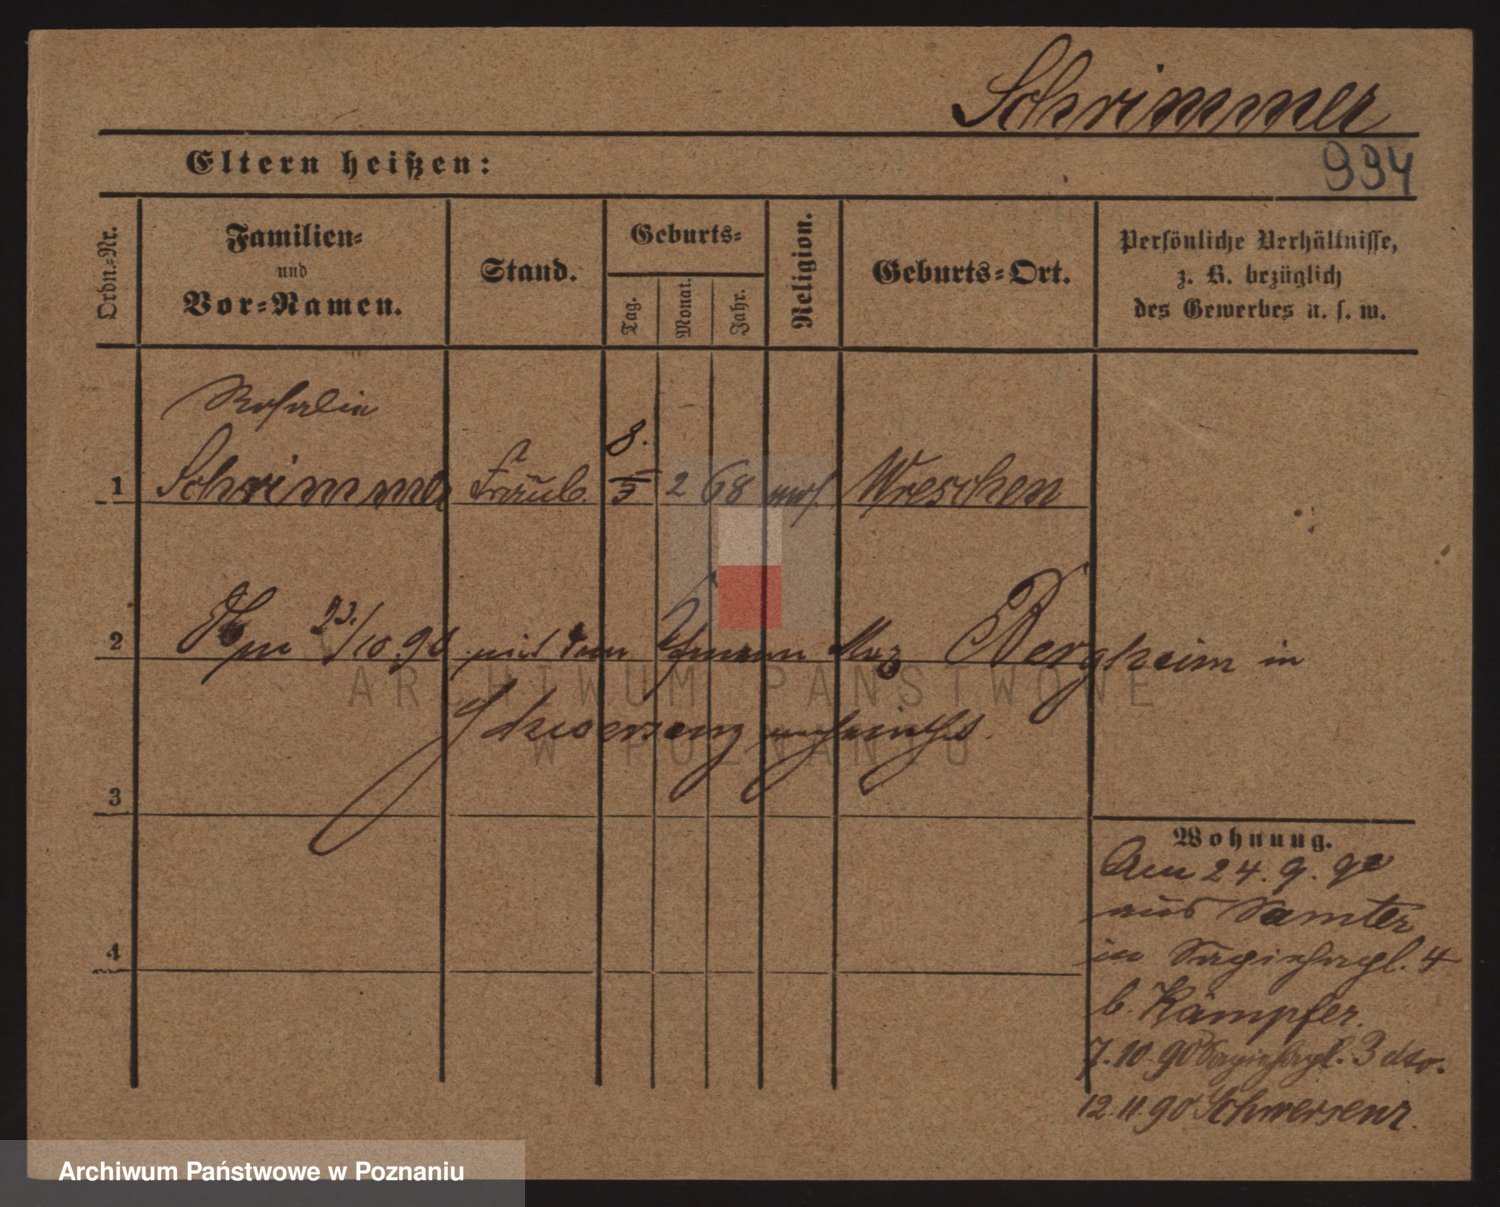 Schrimmer
Eltern heißen:
994
Ordn.-Nr.
Familien-
und
Vor-Namen.
Stand.
Geburts-
Tag.
Monat.
Jahr.
Religion.
Geburts-Ort.
Persönliche Verhältnisse,
z. B. bezüglich
des Gewerbes u. s. w.
Rosalie
1 Schrimmer 8. 5 2 68 mos. Wreschen
2 Am 23./10 90 mit dem Max Bergheim in
Schwersenz
3
Wohnung.
Am 24. 9. 90
aus Samter
in Sapiehapl. 4
b. Kämpfer.
4
7. 10. 90 Sapiehapl. 3 dto.
12. 11. 90 Schwersenz.
ARCHIWUM PAŃSTWOWE
W POZNANIU
Archiwum Państwowe w Poznaniu